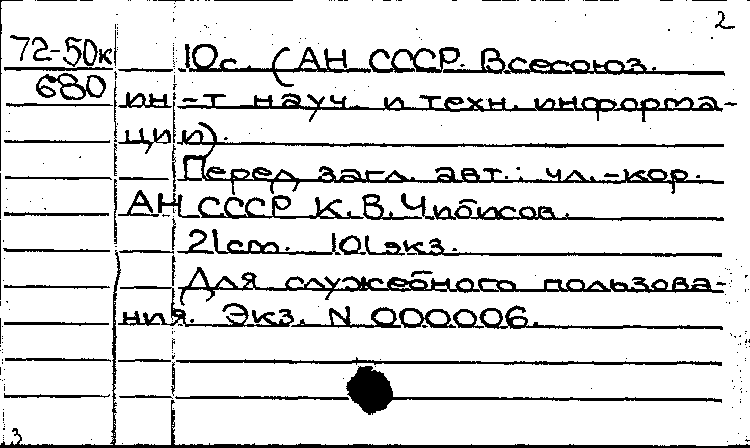 2
72-50к 10с. (АН СССР. Всесоюз.
680 ин-т науч. и техн. информа-
ции).
Перед загл. авт.: чл.-кор.
АН СССР К.В.Чибисов.
21см. 101экз.
Для служебного пользова-
ния. Экз. N 000006.
3